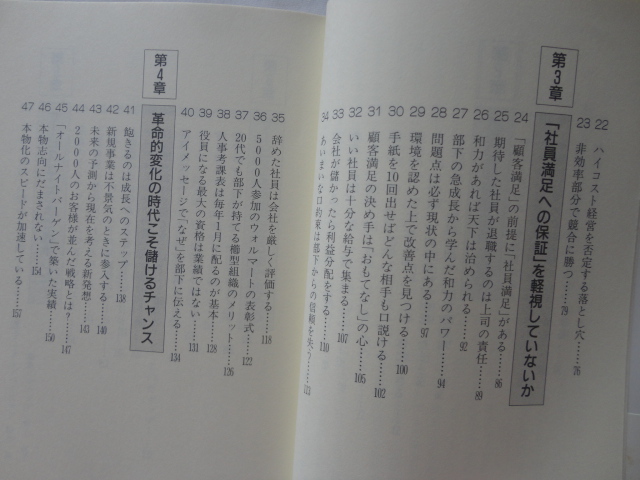 22 ハイコスト経営を否定する落とし穴……76
23 非効率部分で競合に勝つ……79
第3章
「社員満足への保証」を軽視していないか
24 「顧客満足」の前提に「社員満足」がある……86
25 期待した社員が退職するのは上司の責任……89
26 和力があれば天下は治められる……92
27 部下の急成長から学んだ和力のパワー……94
28 問題点は必ず現状の中にある……97
29 環境を認めた上で改善点を見つける……100
30 手紙を10回出せばどんな相手も口説ける……102
31 顧客満足の決め手は「おもてなし」の心……105
32 いい社員は十分な給与で集まる……107
33 会社が儲かったら利益分配をする……110
34 あいまいな口約束は部下からの信頼を失う……113
35 辞めた社員は会社を厳しく評価する……118
36 5000人参加のウォルマートの表彰式……122
37 20代でも部下が持てる櫛型組織のメリット……126
38 人事考課表は毎年1月に配るのが基本……128
39 役員になる最大の資格は業績ではない……131
40 アイメッセージで「なぜ」を部下に伝える……134
第4章
革命的変化の時代こそ儲けるチャンス
41 飽きるのは成長へのステップ……138
42 新規事業は不景気のときに参入する……140
43 未来の予測から現在を考える新発想……143
44 2000人のお客様が並んだ戦略とは？……147
45 「オールナイトバーゲン」で築いた実績……150
46 本物志向にだまされない……154
47 本物化のスピードが加速している……157